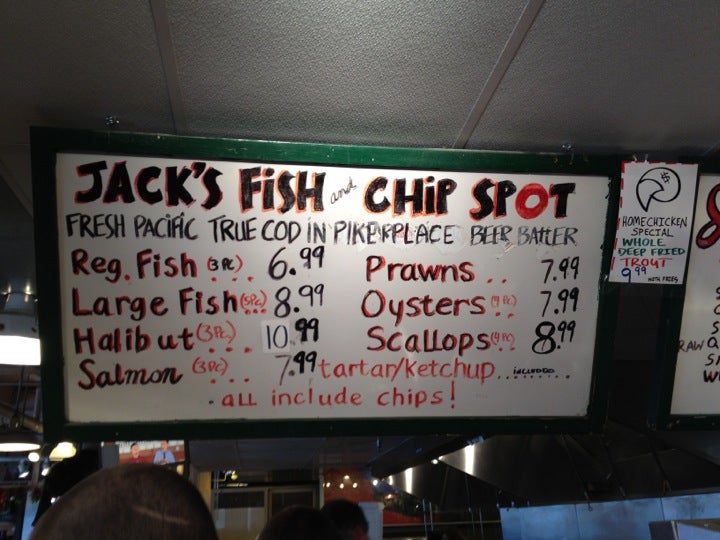 JACK'S FISH and CHIP SPOT
FRESH PACIFIC TRUE COD IN PIKE PLACE BEER BATTER
Reg. Fish (3 Pc) .. 6.99
Large Fish (5Pc) ... 8.99
Halibut (3 Pc) .. 10.99
Salmon (3Pc) .... 7.99
Prawns .. 7.99
Oysters (4 Pc) .. 7.99
Scallops (4 Pc) .. 8.99
tartar/ketchup ... INCLUDED ....
. all include chips!
HOME CHICKEN
SPECIAL
WHOLE
DEEP FRIED
TROUT
9.99 WITH FRIES
RAW